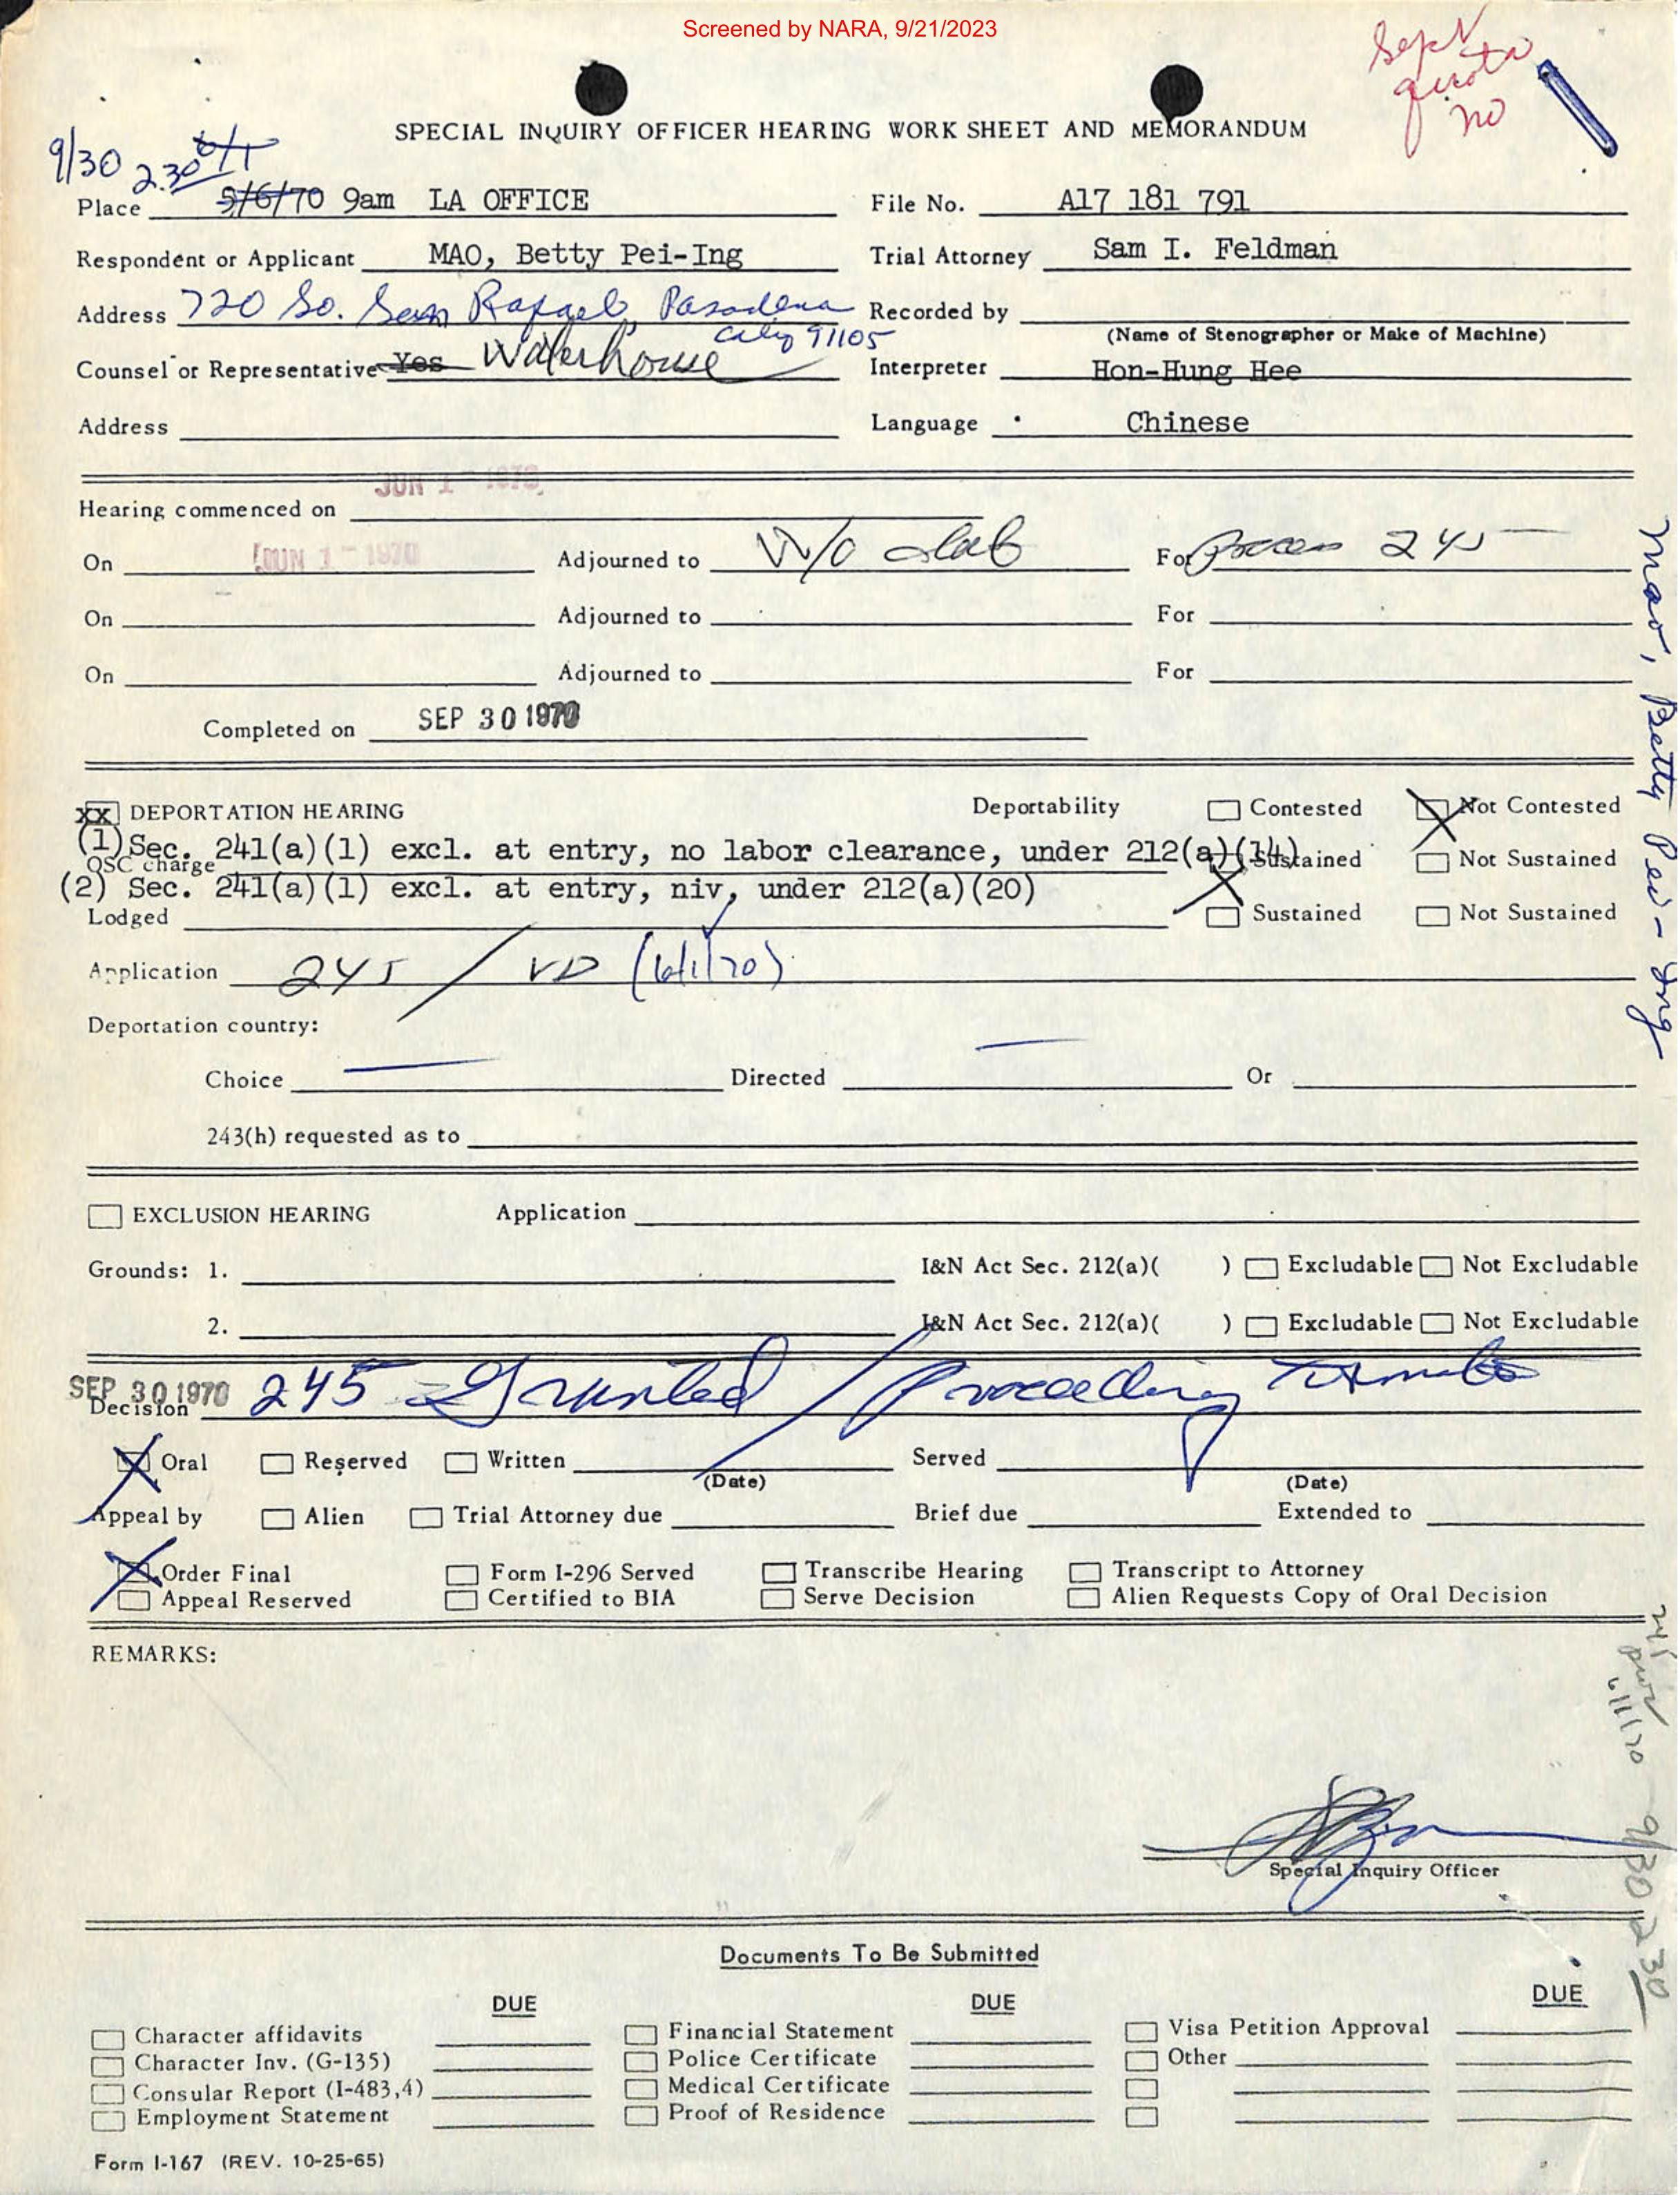 Screened by NARA, 9/21/2023
Sept
quota
no
SPECIAL INQUIRY OFFICER HEARING WORK SHEET AND MEMORANDUM
9/30 2:30 6/1
Place 5/6/70 9am LA OFFICE File No. A17 181 791
Respondent or Applicant MAO, Betty Pei-Ing Trial Attorney Sam I. Feldman
Address 720 So. San Rafael, Pasadena Recorded by
Calif 91105 (Name of Stenographer or Make of Machine)
Counsel or Representative Yes Waterhouse Interpreter Hon-Hung Hee
Address Language Chinese
JUN 1 - 1970
Hearing commenced on
On JUN 1 - 1970 Adjourned to W/O date For process 245
On Adjourned to For
On Adjourned to For
Completed on SEP 30 1970
XX DEPORTATION HEARING Deportability Contested Not Contested
(1) Sec. 241(a)(1) excl. at entry, no labor clearance, under 212(a)(14)
OSC charge Sustained Not Sustained
(2) Sec. 241(a)(1) excl. at entry, niv, under 212(a)(20)
Lodged Sustained Not Sustained
Application 245 / VD (6/1/70)
Deportation country:
Choice Directed Or
243(h) requested as to
EXCLUSION HEARING Application
Grounds: 1. I&N Act Sec. 212(a)( ) Excludable Not Excludable
2. I&N Act Sec. 212(a)( ) Excludable Not Excludable
SEP 30 1970
Decision 245 Granted / Proceeding
Oral Reserved Written Served
(Date) (Date)
Appeal by Alien Trial Attorney due Brief due Extended to
Order Final Form I-296 Served Transcribe Hearing Transcript to Attorney
Appeal Reserved Certified to BIA Serve Decision Alien Requests Copy of Oral Decision
REMARKS:
Special Inquiry Officer
Documents To Be Submitted
DUE DUE DUE
Character affidavits Financial Statement Visa Petition Approval
Character Inv. (G-135) Police Certificate Other
Consular Report (I-483,4) Medical Certificate
Employment Statement Proof of Residence
Form I-167 (REV. 10-25-65)
Mao, Betty Pei-Ing
245
6/1/70
9/30 2 30